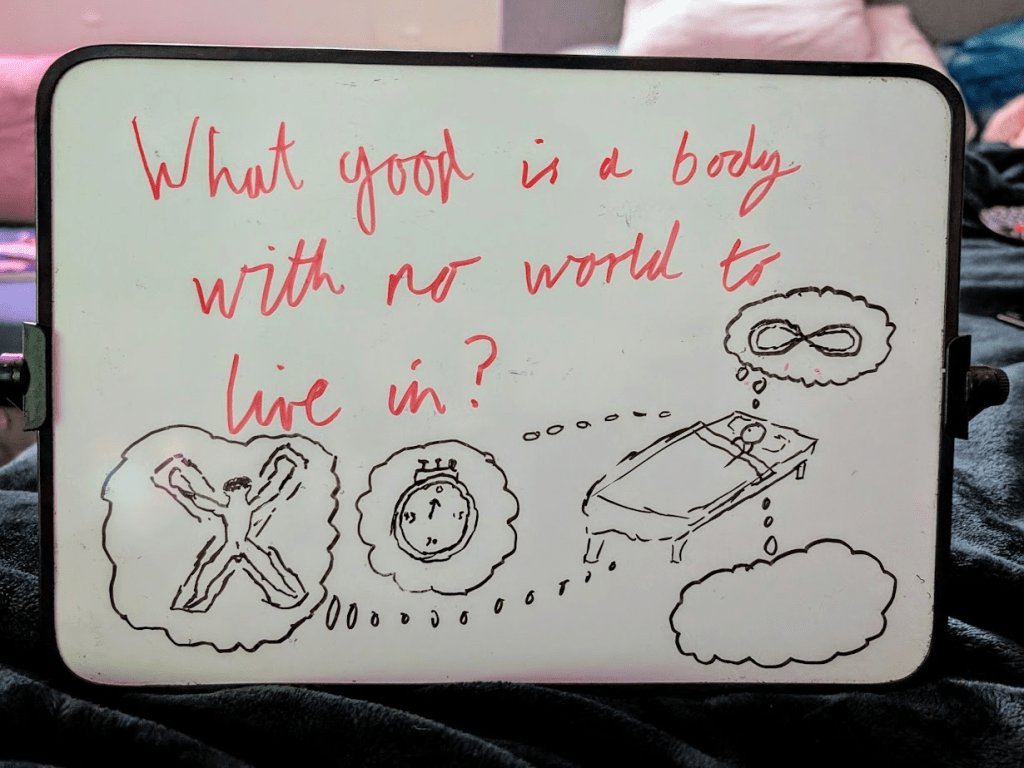 What good is a body
with no world to
live in?
0
45 15
30